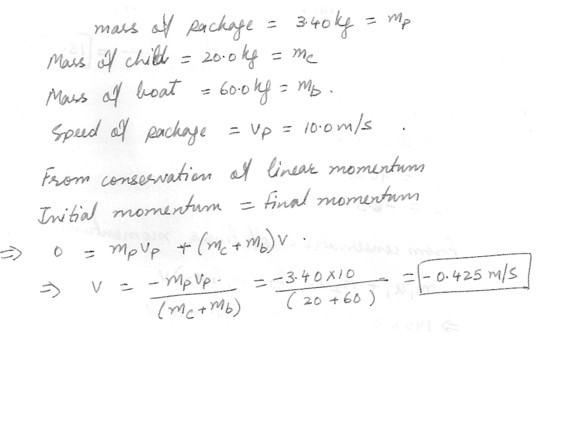 mass of package = 3.40 kg = mp
Mass of child = 20.0 kg = mc
Mass of boat = 60.0 kg = mb.
Speed of package = vp = 10.0 m/s .
From conservation of linear momentum
Initial momentum = final momentum
⇒ 0 = mpvp + (mc + mb)v .
⇒ v = -mpvp. / (mc + mb) = -3.40×10 / (20 + 60) = -0.425 m/s